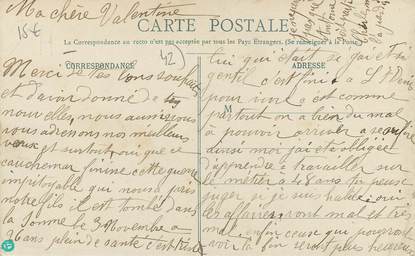 Ma chère Valentine
15€
CARTE POSTALE
La Correspondance au recto n'est pas acceptée par tous les Pays Etrangers. (Se renseigner à la Poste)
CORRESPONDANCE
42)
ADRESSE
Merci de tes bons souhaits
et d'avoir donné de tes
nouvelles, nous aussi nous
vous adressons nos meilleurs
vœux et surtout que ce
cauchemar finisse cette guerre
impitoyable qui nous a pris
notre fils il est tombé dans
la Somme le 3 Novembre a
26 ans plein de santé c'est triste
lui qui était si gai et si
gentil c'est fini a St
pour vivre est comme
partout on a bien du mal
M
à pouvoir arriver a
ainsi moi j'ai été obligée
d'apprendre a travailler sur
le métier a 48 ans tu peux
juger si je suis
les affaires vont mal et très
mal, enfin ceux qui pourront
voir la fin seront plus heureux